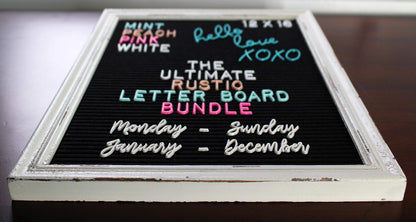 MINT
PEACH
PINK
WHITE
hello
love
XOXO
12 X 16
THE
ULTIMATE
RUSTIC
LETTER BOARD
BUNDLE
Monday - Sunday
January - December